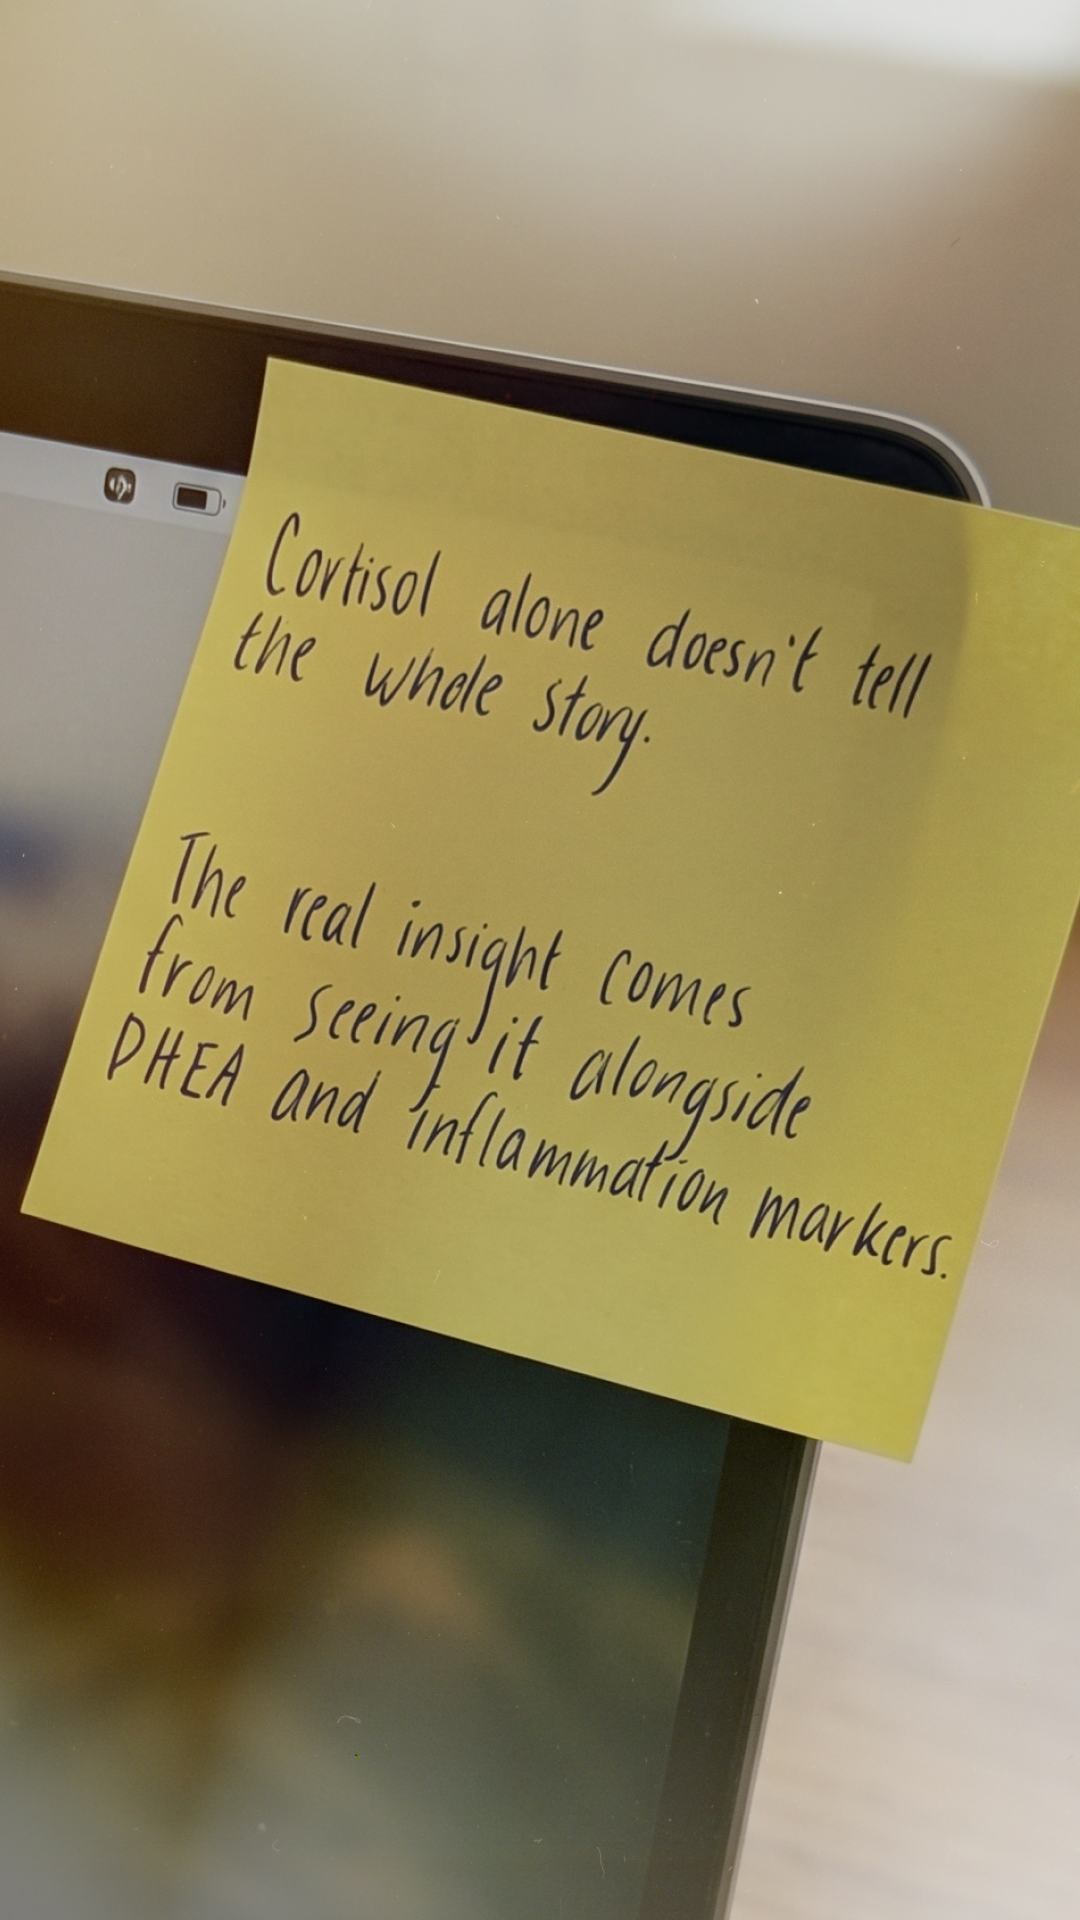 Cortisol alone doesn't tell
the whole story.
The real insight comes
from seeing it alongside
DHEA and inflammation markers.